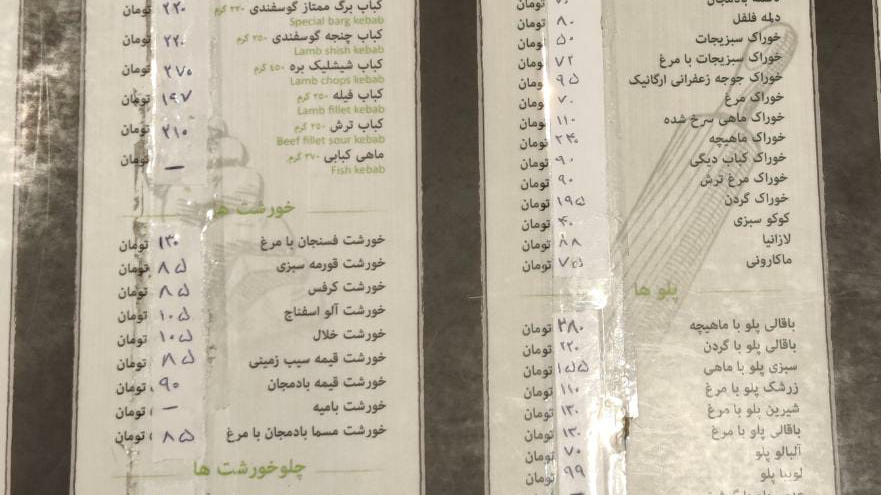 کباب برگ ممتاز گوسفندی ۲۲۰ گرم ۲۲۰ تومان
Special barg kebab
کباب چنجه گوسفندی ۲۵۰ گرم ۲۲۰ تومان
Lamb shish kebab
کباب شیشلیک بره ٤٥٠ گرم ۲۷۰ تومان
Lamb chops kebab
کباب فیله ۲۵۰ گرم ۱۹۷ تومان
Lamb fillet kebab
کباب ترش ۲۵۰ گرم ۲۱۰ تومان
Beef fillet sour kebab
ماهی کبابی ۲۷۰ گرم – تومان
Fish kebab
خورشت ها
خورشت فسنجان با مرغ ۱۳۰ تومان
خورشت قورمه سبزی ۸۵ تومان
خورشت کرفس ۸۵ تومان
خورشت آلو اسفناج ۱۰۵ تومان
خورشت خلال ۱۰۵ تومان
خورشت قیمه سیب زمینی ۸۵ تومان
خورشت قیمه بادمجان ۹۰ تومان
خورشت بامیه – تومان
خورشت مسما بادمجان با مرغ ۸۵ تومان
چلوخورشت ها
دلمه فلفل ۸۰ تومان
خوراک سبزیجات ۵۰ تومان
خوراک سبزیجات با مرغ ۷۲ تومان
خوراک جوجه زعفرانی ارگانیک ۹۵ تومان
خوراک مرغ ۷۰ تومان
خوراک ماهی سرخ شده ۱۱۰ تومان
خوراک ماهیچه ۲۴۰ تومان
خوراک کباب دیگی ۹۰ تومان
خوراک مرغ ترش ۹۰ تومان
خوراک گردن ۱۹۵ تومان
کوکو سبزی ۴۰ تومان
لازانیا ۸۸ تومان
ماکارونی ۷۵ تومان
پلو ها
باقالی پلو با ماهیچه ۲۸۰ تومان
باقالی پلو با گردن ۲۲۰ تومان
سبزی پلو با ماهی ۱۵۵ تومان
زرشک پلو با مرغ ۱۱۰ تومان
شیرین پلو با مرغ ۱۳۰ تومان
باقالی پلو با مرغ ۱۳۰ تومان
آلبالو پلو ۷۰ تومان
لوبیا پلو ۹۹ تومان